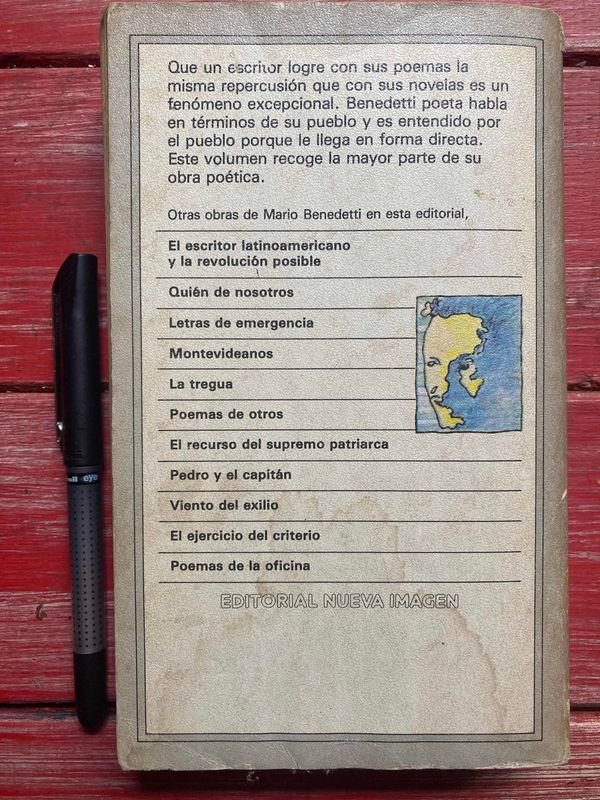 Que un escritor logre con sus poemas la
misma repercusión que con sus novelas es un
fenómeno excepcional. Benedetti poeta habla
en términos de su pueblo y es entendido por
el pueblo porque le llega en forma directa.
Este volumen recoge la mayor parte de su
obra poética.
Otras obras de Mario Benedetti en esta editorial,
El escritor latinoamericano
y la revolución posible
Quién de nosotros
Letras de emergencia
Montevideanos
La tregua
Poemas de otros
El recurso del supremo patriarca
Pedro y el capitán
Viento del exilio
El ejercicio del criterio
Poemas de la oficina
EDITORIAL NUEVA IMAGEN
eye